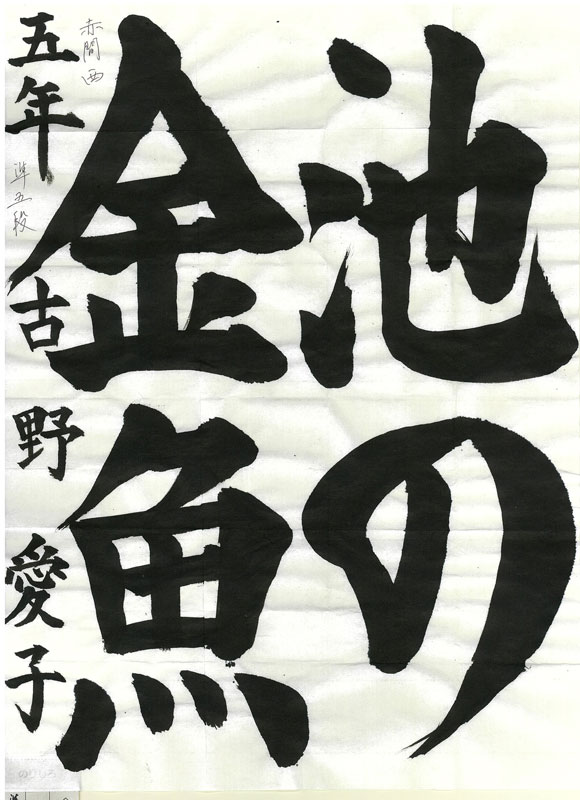 池の
金魚
赤間西
準五段
五年 古野愛子
のりしろ